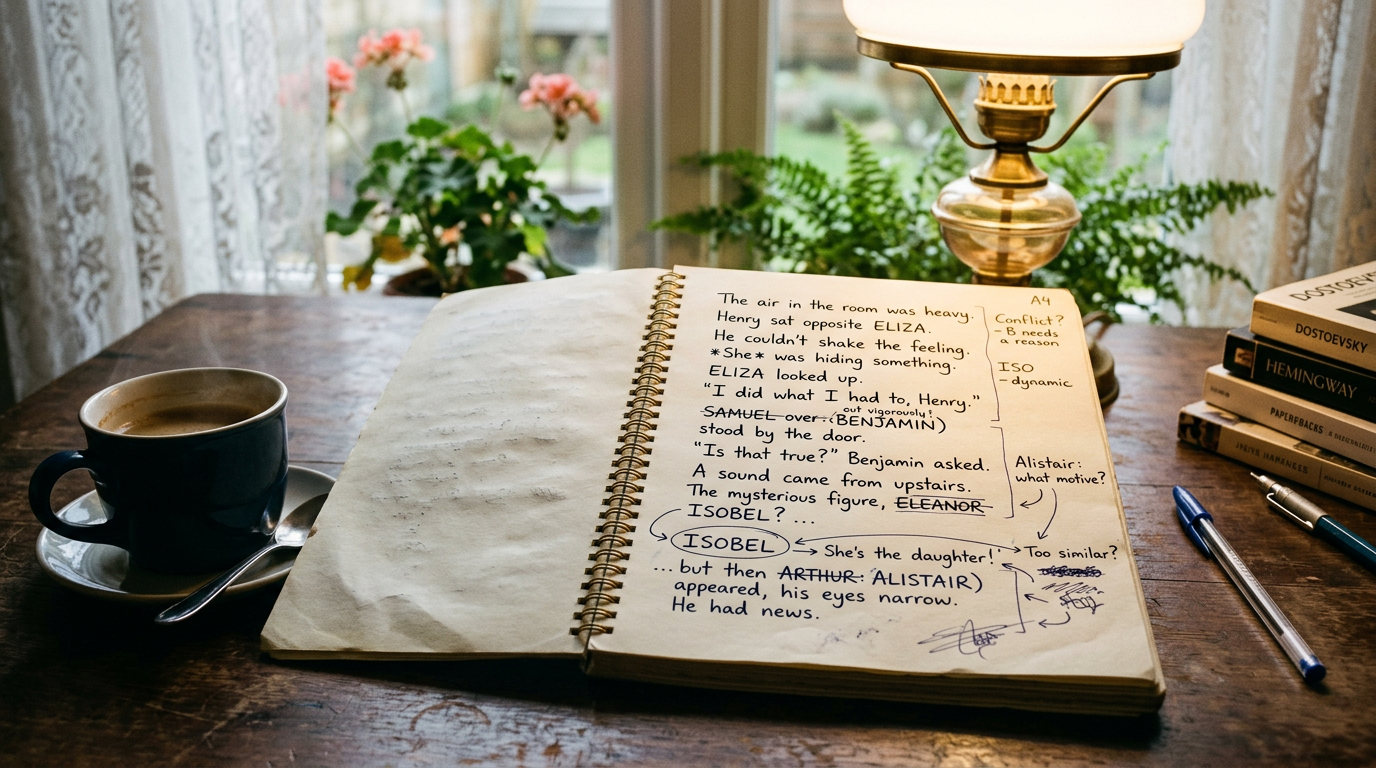 A4
The air in the room was heavy.
Henry sat opposite ELIZA.
He couldn't shake the feeling.
*She* was hiding something.
ELIZA looked up.
"I did what I had to, Henry."
out vigorously?
SAMUEL over: (BENJAMIN)
stood by the door.
"Is that true?" Benjamin asked.
A sound came from upstairs.
The mysterious figure, ELEANOR
ISOBEL? ...
ISOBEL
She's the daughter!
... but then ARTHUR: ALISTAIR)
appeared, his eyes narrow.
He had news.
Conflict?
- B needs
a reason
ISO
- dynamic
Alistair:
what motive?
Too similar?
DOSTOEVSKY
DOSTOEVSKY
HEMINGWAY
PAPERBACKS